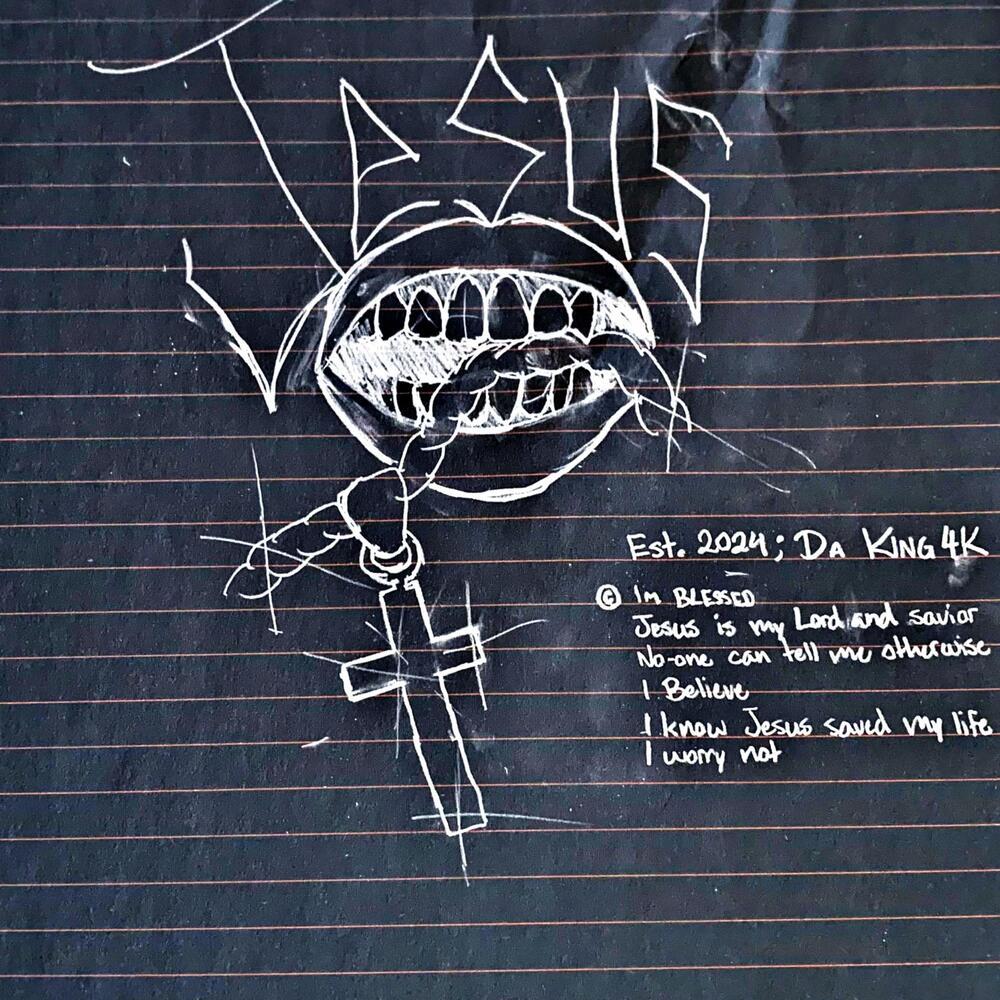 JESUS
Est. 2024; DA KING 4K
© IM BLESSED
Jesus is my Lord and savior
No-one can tell me otherwise
I Believe
I know Jesus saved my life
I worry not